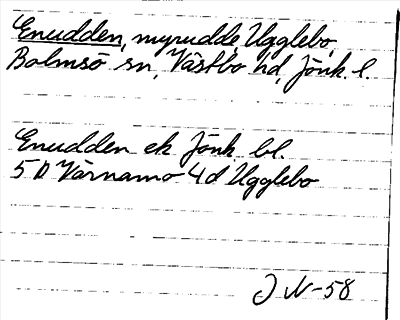 Enudden, myrudde, Ugglebo,
Bolmsö sn, Västbo hd, Jönk. l.
Enudden ek Jönk bl.
5 D Värnamo 4d Ugglebo
J N-58